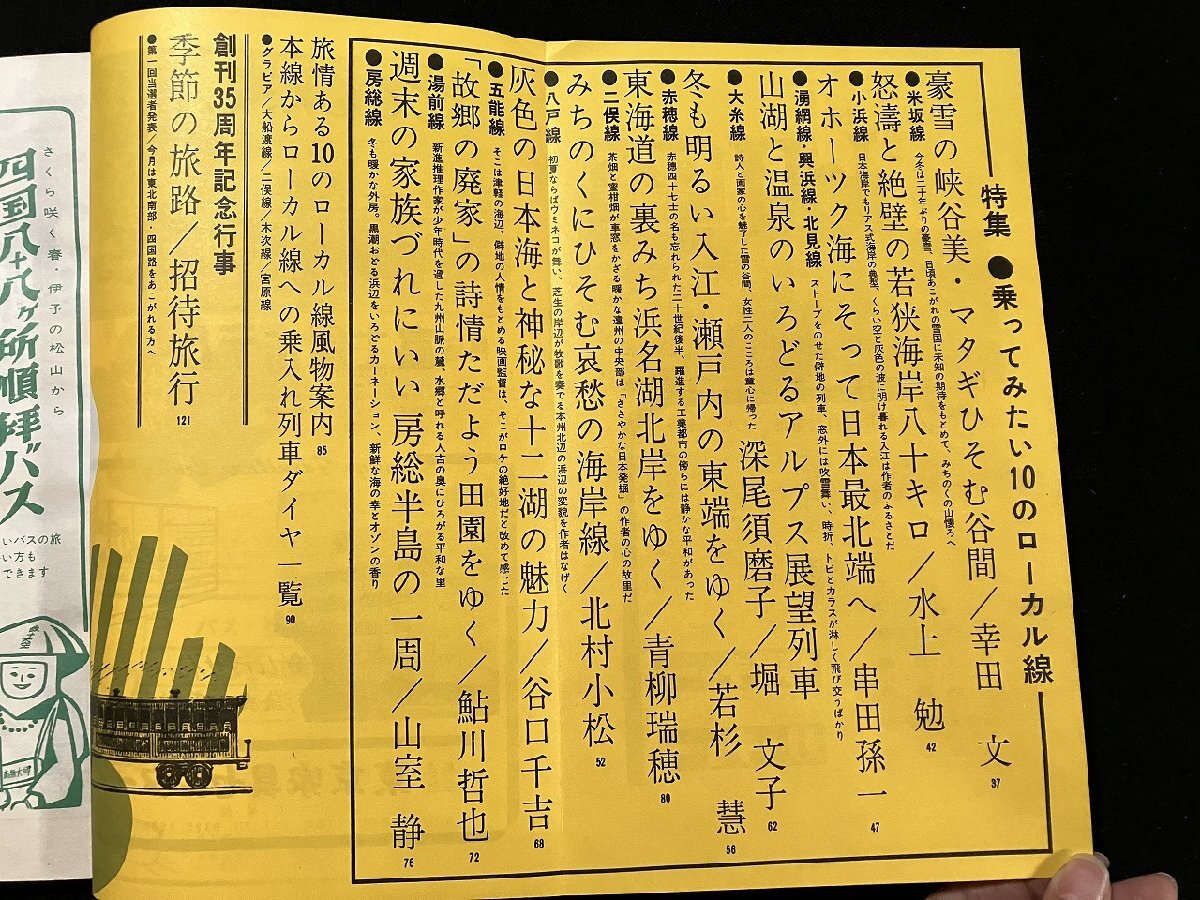 特集 ●乗ってみたい10のローカル線
豪雪の峡谷美・マタギひそむ谷間／幸田 文 37
●米坂線
怒濤と絶壁の若狭海岸八十キロ／水上 勉 42
●小浜線 日本海岸でもリアス式海岸の典型、くらい空と灰色の波に明け暮れる入江は作者のふるさとだ
オホーツク海にそって日本最北端へ／串田孫一 47
●湧網線・興浜線・北見線 ストーブをのせた僻地の列車、窓外には吹雪舞い、時折、トビとカラスが淋しく飛び交うばかり
山湖と温泉のいろどるアルプス展望列車
深尾須磨子／堀 文子 62
●大糸線 詩人と画家の心を魅了した雪の谷間、女性二人のこころは童心に帰った
冬も明るい入江・瀬戸内の東端をゆく／若杉 慧 56
●赤穂線 赤穂四十七士の名も忘れられた二十世紀後半、躍進する工業都市の傍らには静かな平和があった
東海道の裏みち浜名湖北岸をゆく／青柳瑞穂 80
●二俣線 茶畑と蜜柑畑が車窓をかざる暖かな遠州の中央部は「ささやかな日本発掘」の作者の心の故里だ
みちのくにひそむ哀愁の海岸線／北村小松 52
●八戸線 初夏ならばウミネコが舞い、芝生の岸辺が牧歌を奏でる本州北辺の浜辺の変貌を作者はなげく
灰色の日本海と神秘な十二湖の魅力／谷口千吉 68
●五能線 そこは津軽の海辺、僻地の人情をもとめる映画監督は、そこがロケの絶好地だと改めて感じた
「故郷の廃家」の詩情ただよう田園をゆく／鮎川哲也 72
●湯前線 新進推理作家が少年時代を過した九州山脈の麓、水郷と呼れる人吉の奥にひろがる平和な里
週末の家族づれにいい房総半島の一周／山室 静 76
●房総線 冬も暖かな外房。黒潮おどる浜辺をいろどるカーネーション、新鮮な海の幸とオゾンの香り
旅情ある10のローカル線風物案内 85
本線からローカル線への乗入れ列車ダイヤ一覧 90
●グラビア／大船渡線／二俣線／木次線／宮原線
創刊35周年記念行事
季節の旅路／招待旅行 121
●第一回当選者発表／今月は東北南部・四国路をあこがれる方へ
さくら咲く春・伊予の松山から
四国八十八ヶ所順拝バス
いバスの旅
い方も
できます